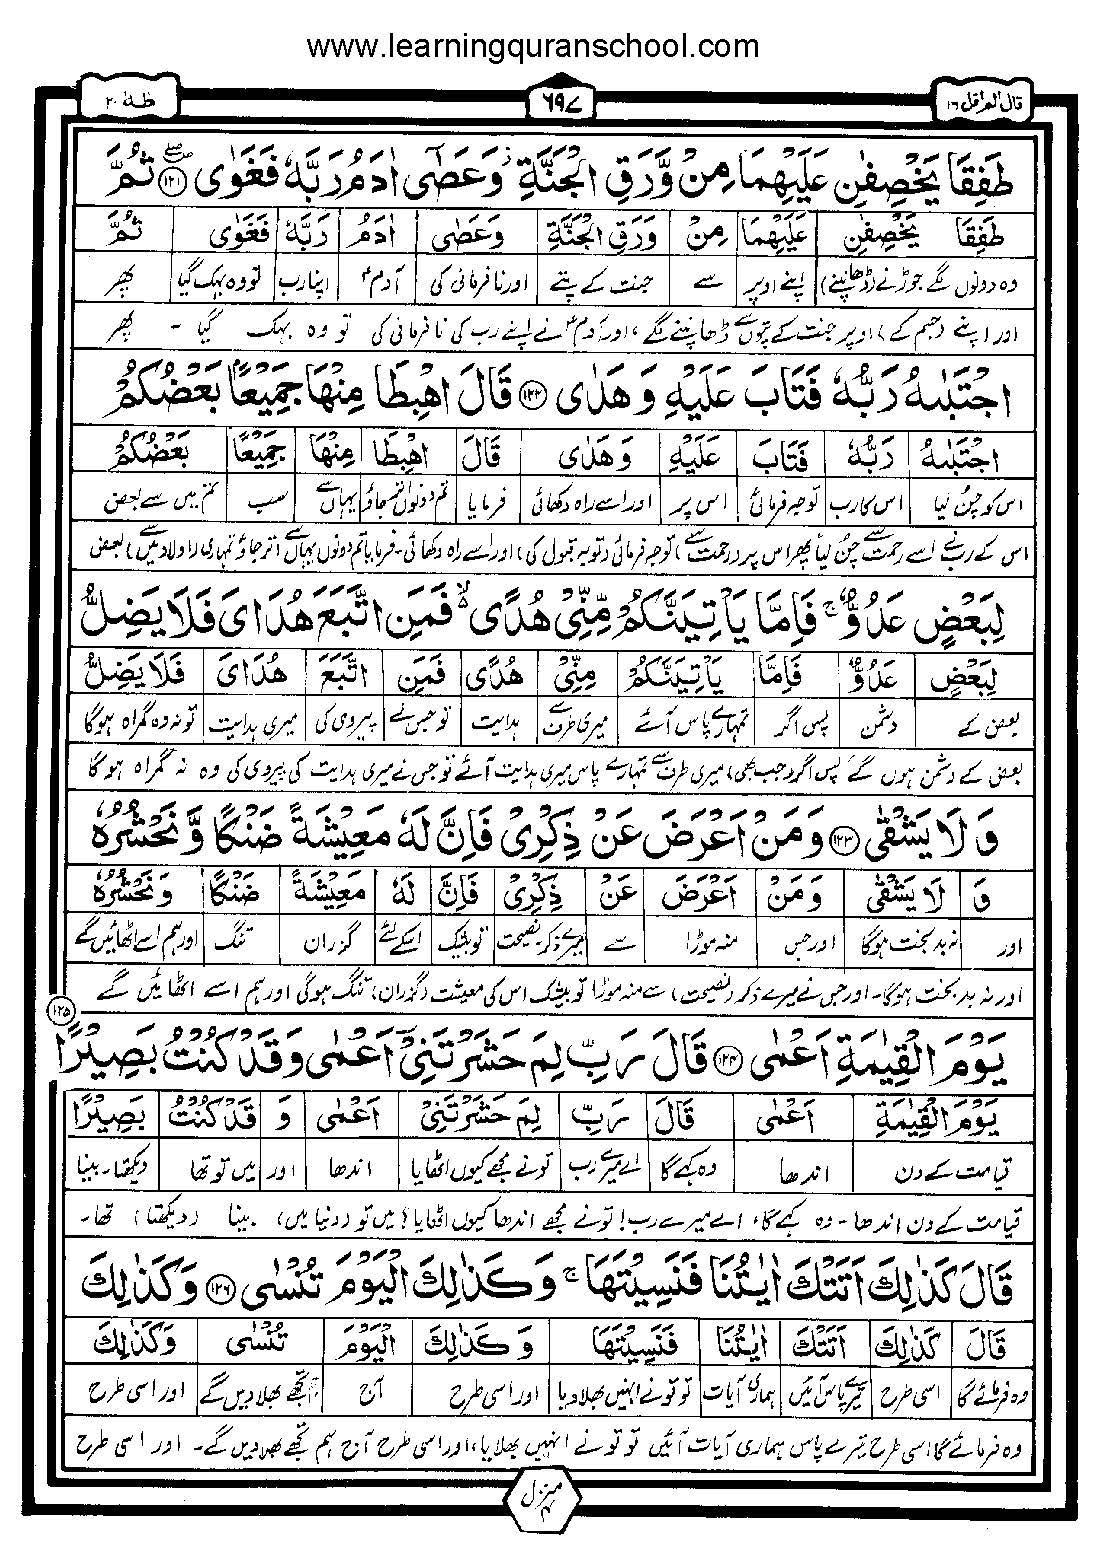 www.learningquranschool.com
قال الم اقل ١٦
٦٩٧
طٰهٰ ٢٠
طَفِقَا يَخْصِفٰنِ عَلَيْهِمَا مِنْ وَّرَقِ الْجَنَّةِ ۫ وَعَصٰٓى اٰدَمُ رَبَّهٗ فَغَوٰى ۝۱۲۱ ثُمَّ
طَفِقَا يَخْصِفٰنِ عَلَيْهِمَا مِنْ وَرَقِ الْجَنَّةِ وَعَصٰى اٰدَمُ رَبَّهٗ فَغَوٰى ثُمَّ
وہ دونوں لگے جوڑنے (ڈھانپنے) اپنے اوپر سے جنت کے پتے اور نافرمانی کی آدمؑ اپنا رب تو وہ بہک گیا پھر
اور اپنے (جسم کے) اوپر جنت کے پتوں سے ڈھانپنے لگے، اور آدمؑ نے اپنے رب کی نافرمانی کی تو وہ بہک گیا ۔ پھر
اجْتَبٰىهُ رَبُّهٗ فَتَابَ عَلَيْهِ وَهَدٰى ۝۱۲۲ قَالَ اهْبِطَا مِنْهَا جَمِيْعًۢا بَعْضُكُمْ
اجْتَبٰىهُ رَبُّهٗ فَتَابَ عَلَيْهِ وَهَدٰى قَالَ اهْبِطَا مِنْهَا جَمِيْعًا بَعْضُكُمْ
اس کو چن لیا اس کا رب توجہ فرمائی اس پر اور اسے راہ دکھائی فرمایا تم دونوں اتر جاؤ یہاں سے سب تم میں سے بعض
اس کے رب نے اسے رحمت سے چن لیا پھر اس پر (رحمت سے) توجہ فرمائی (توبہ قبول کی) اور اسے راہ دکھائی ۔ فرمایا تم دونوں یہاں سے اتر جاؤ تمہاری (اولاد میں سے) بعض
لِبَعْضٍ عَدُوٌّ ۚ فَاِمَّا يَاْتِيَنَّكُمْ مِّنِّيْ هُدًى ۙ۬ فَمَنِ اتَّبَعَ هُدَايَ فَلَا يَضِلُّ
لِبَعْضٍ عَدُوٌّ فَاِمَّا يَاْتِيَنَّكُمْ مِنِّيْ هُدًى فَمَنِ اتَّبَعَ هُدَايَ فَلَا يَضِلُّ
بعض کے دشمن پس اگر تمہارے پاس آئے میری طرف سے ہدایت تو جس نے پیروی کی میری ہدایت تو نہ وہ گمراہ ہوگا
بعض کے دشمن ہوں گے پس اگر (جب بھی) میری طرف سے تمہارے پاس میری ہدایت آئے تو جس نے میری ہدایت کی پیروی کی وہ نہ گمراہ ہوگا
وَلَا يَشْقٰى ۝۱۲۳ وَمَنْ اَعْرَضَ عَنْ ذِكْرِيْ فَاِنَّ لَهٗ مَعِيْشَةً ضَنْكًا وَّنَحْشُرُهٗ
وَ لَا يَشْقٰى وَمَنْ اَعْرَضَ عَنْ ذِكْرِيْ فَاِنَّ لَهٗ مَعِيْشَةً ضَنْكًا وَنَحْشُرُهٗ
اور نہ بدبخت ہوگا اور جس منہ موڑا سے میرے ذکر نصیحت تو بیشک اسکے لئے گزران تنگ اور ہم اسے اٹھائیں گے
اور نہ بدبخت ہوگا ۔ اور جس نے میرے ذکر (نصیحت) سے منہ موڑا تو بیشک اس کی معیشت (گزران) تنگ ہوگی اور ہم اسے اٹھائیں گے
يَوْمَ الْقِيٰمَةِ اَعْمٰى ۝۱۲۴ قَالَ رَبِّ لِمَ حَشَرْتَنِيْٓ اَعْمٰى وَقَدْ كُنْتُ بَصِيْرًا ۝۱۲۵
يَوْمَ الْقِيٰمَةِ اَعْمٰى قَالَ رَبِّ لِمَ حَشَرْتَنِيْ اَعْمٰى وَ قَدْ كُنْتُ بَصِيْرًا
قیامت کے دن اندھا وہ کہے گا اے میرے رب تو نے مجھے کیوں اٹھایا اندھا اور میں تو تھا دیکھتا۔ بینا
قیامت کے دن اندھا ۔ وہ کہے گا، اے میرے رب! تو نے مجھے اندھا کیوں اٹھایا؟ میں تو (دنیا میں) بینا (دیکھتا) تھا ۔
قَالَ كَذٰلِكَ اَتَتْكَ اٰيٰتُنَا فَنَسِيْتَهَا ۚ وَكَذٰلِكَ الْيَوْمَ تُنْسٰى ۝۱۲۶ وَكَذٰلِكَ
قَالَ كَذٰلِكَ اَتَتْكَ اٰيٰتُنَا فَنَسِيْتَهَا وَكَذٰلِكَ الْيَوْمَ تُنْسٰى وَكَذٰلِكَ
وہ فرمائے گا اسی طرح تیرے پاس آئیں ہماری آیات تو تو نے انہیں بھلا دیا اور اسی طرح آج ہم تجھے بھلا دیں گے اور اسی طرح
وہ فرمائے گا، اسی طرح تیرے پاس ہماری آیات آئیں تو تو نے انہیں بھلایا، اور اسی طرح آج ہم تجھے بھلا دیں گے ۔ اور اسی طرح
منزل ۴